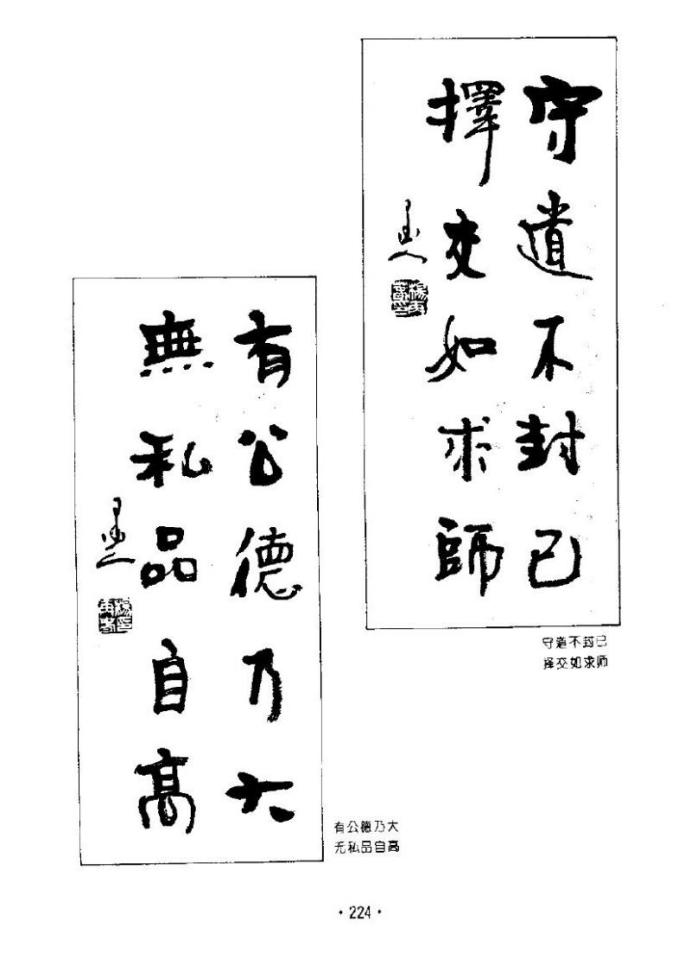 守道不封己
擇交如求師
守道不封己
择交如求师
有公德乃大
無私品自高
有公德乃大
无私品自高
·224·